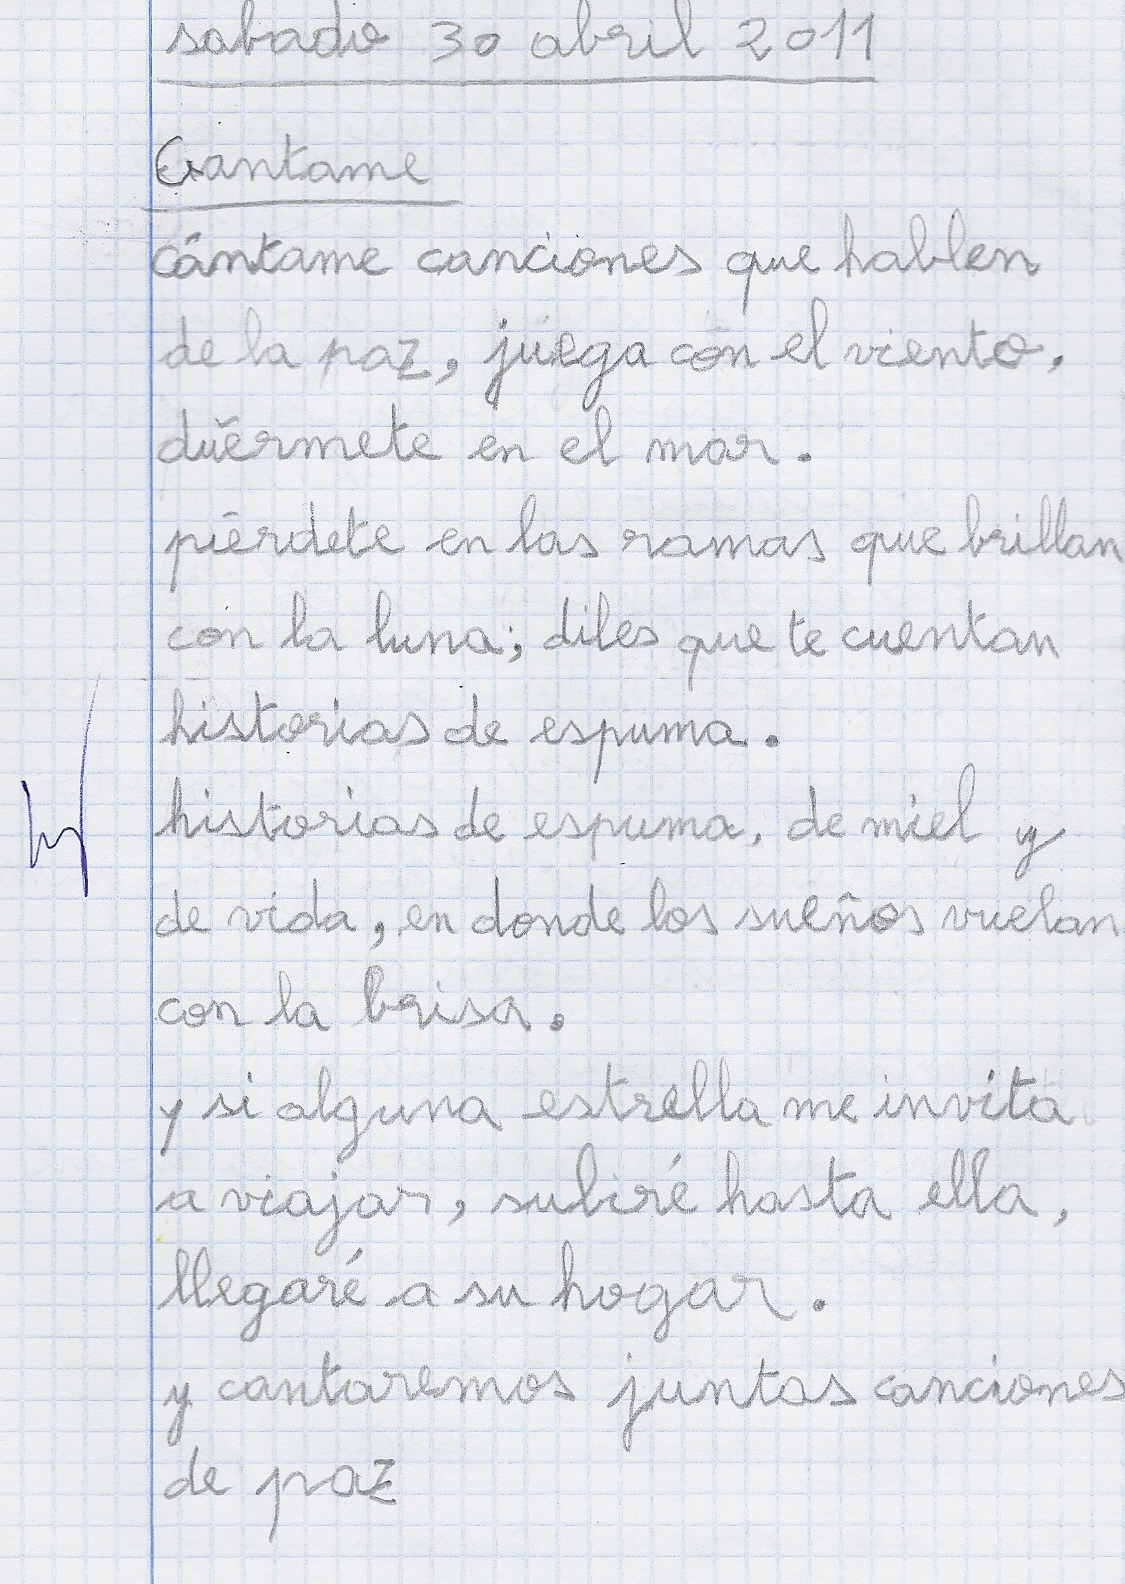 sabado 30 abril 2011
Cantame
cántame canciones que hablen
de la paz, juega con el viento,
duérmete en el mar.
piérdete en las ramas que brillan
con la luna; diles que te cuentan
historias de espuma.
historias de espuma, de miel y
de vida, en donde los sueños vuelan
con la brisa.
y si alguna estrella me invita
a viajar, subiré hasta ella,
llegaré a su hogar.
y cantaremos juntas canciones
de paz